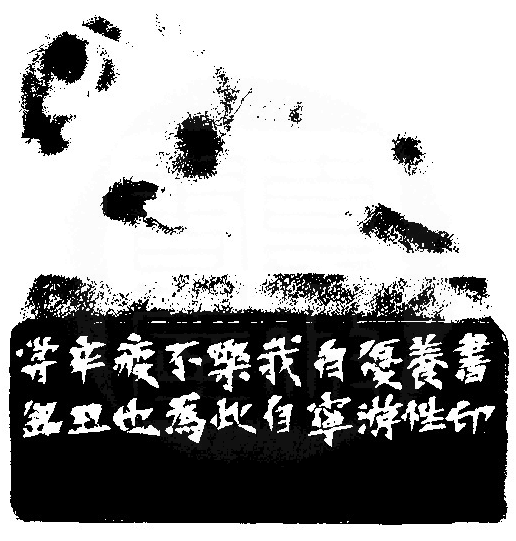 書印
養性
優游
自寧
我自
樂此
不為
疲也
辛丑